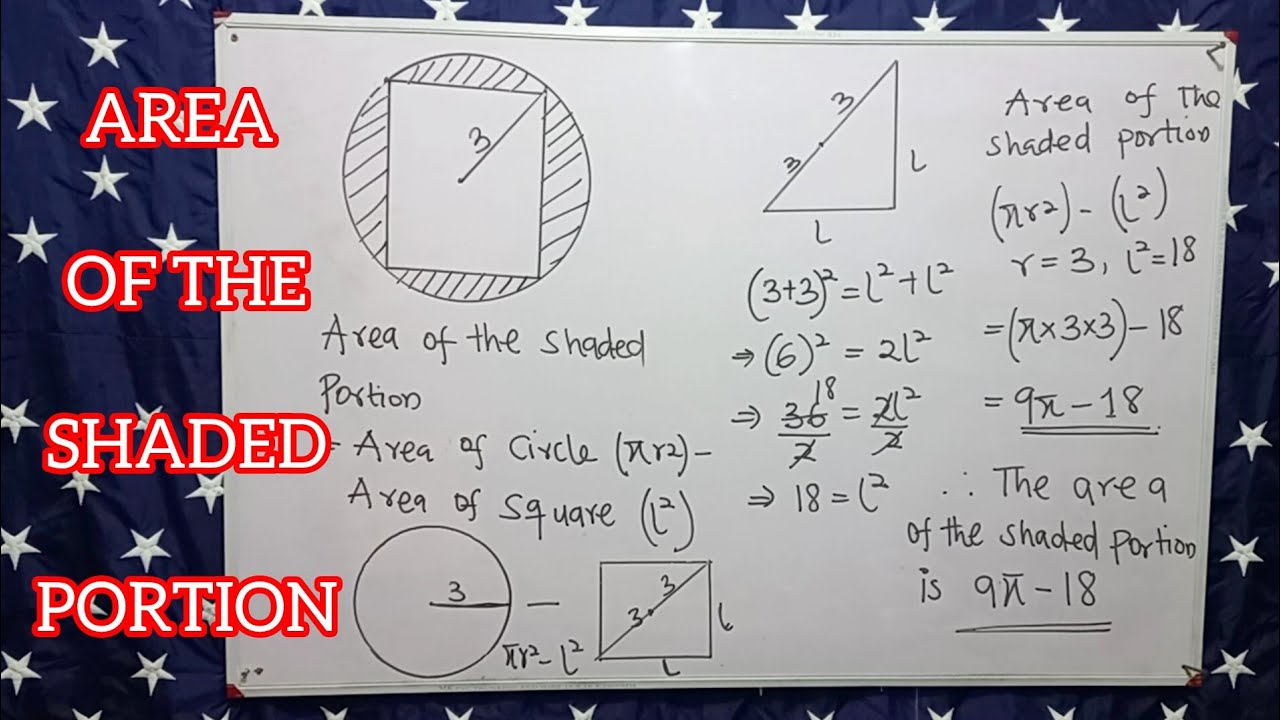 AREA
OF THE
SHADED
PORTION
3
Area of the shaded
Portion
- Area of Circle (πr²) -
Area of Square (l²)
3 —
3
3
l
l
πr² - l²
3
3
l
l
(3+3)² = l² + l²
⇒ (6)² = 2l²
18
⇒ 36/2 = 2l²/2
⇒ 18 = l²
Area of The
shaded portion
(πr²) - (l²)
r = 3, l² = 18
= (π×3×3) - 18
= 9π - 18
∴ The area
of the shaded portion
is 9π - 18